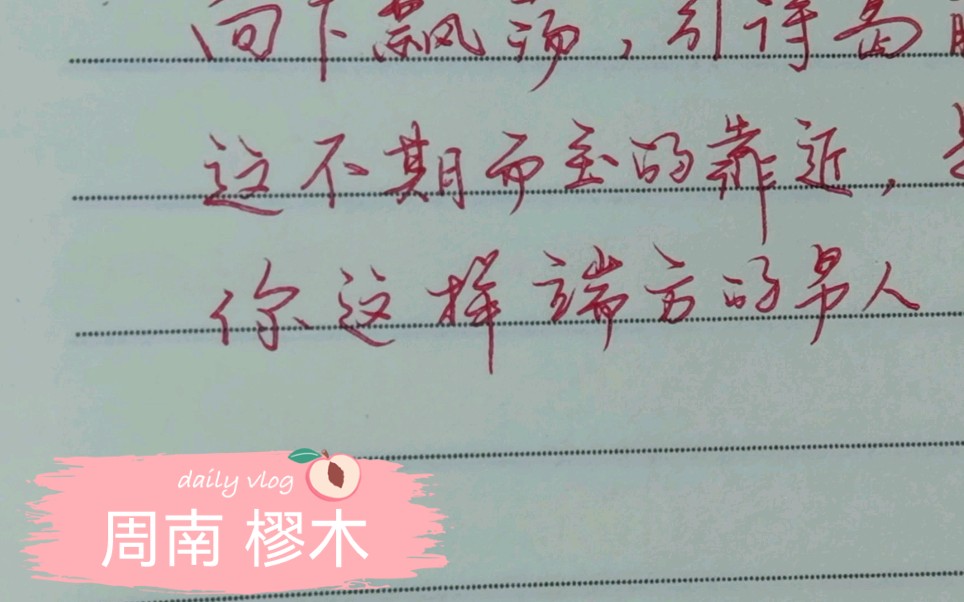 向下飘荡，引得葛
这不期而至的靠近，是
你这样端方的男人
daily vlog
周南 樛木